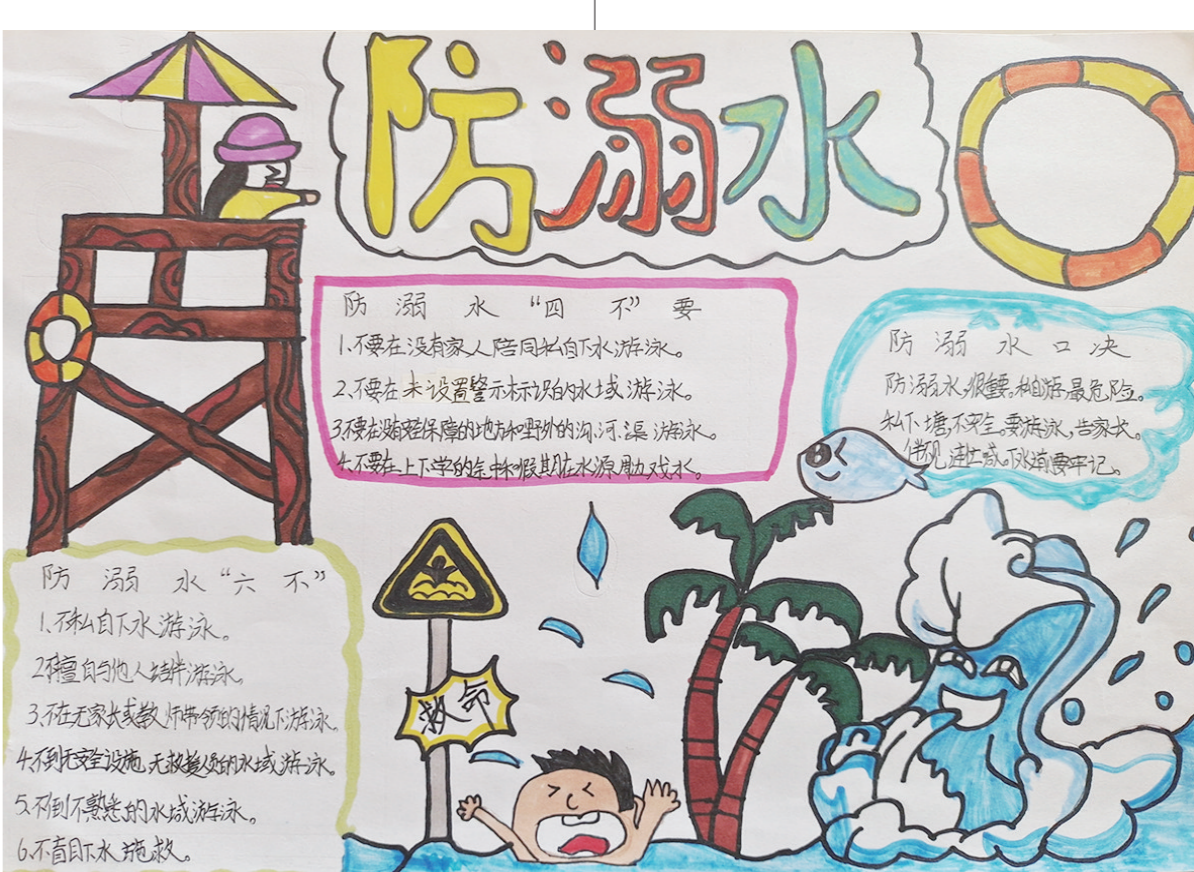 防溺水
防溺水“四不”要
1、不要在没有家人陪同私自下水游泳。
2、不要在未设置警示标识的水域游泳。
3、不要在没有安全保障的地方和野外的沟、河、渠游泳。
4、不要在上下学的途中和假期在水源旁戏水。
防溺水口决
防溺水,很重要。私自游,最危险。
私下塘,不安全。要游泳,告家长。
牢记。
防溺水“六不”
1、不私自下水游泳。
2、不擅自与他人结伴游泳。
3、不在无家长或教师带领的情况下游泳。
4、不到无安全设施,无救援人员的水域游泳。
5、不到不熟悉的水域游泳。
6、不盲目下水施救。
救命